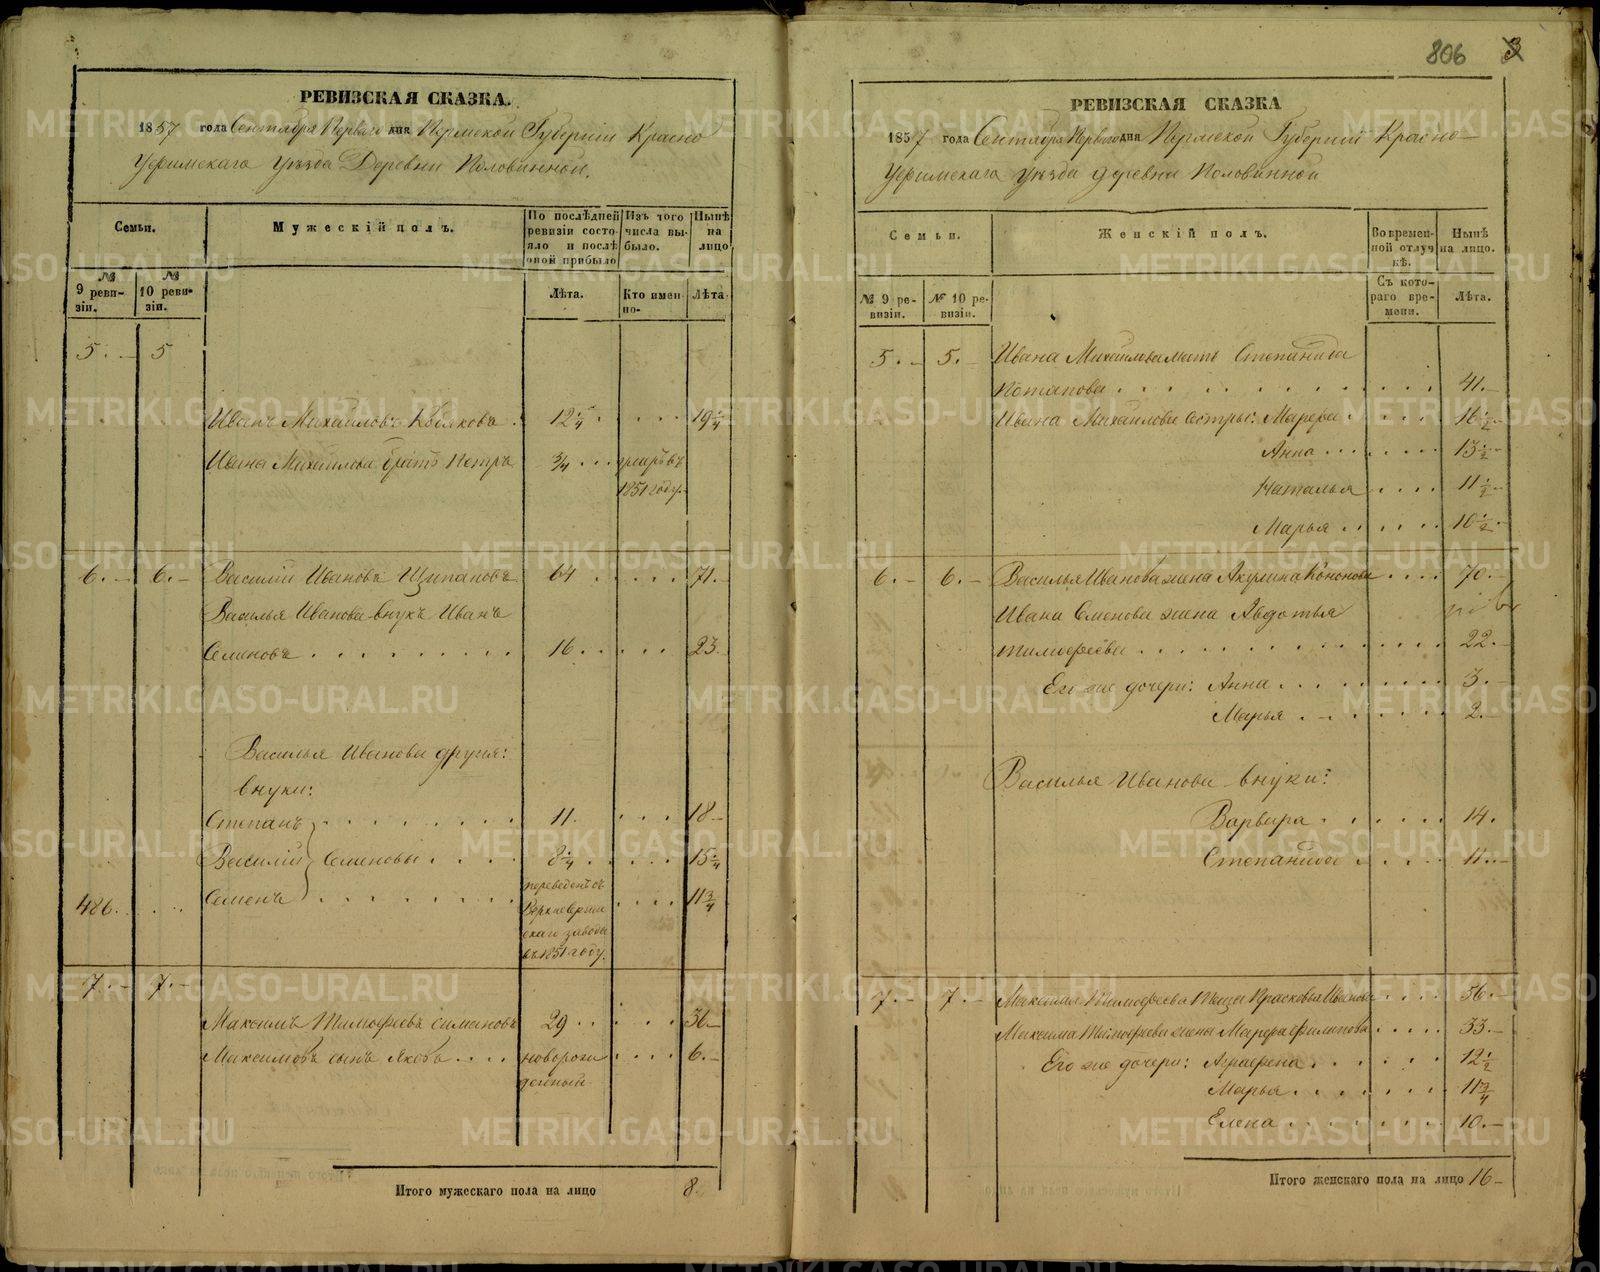 РЕВИЗСКАЯ СКАЗКА.
1857 года Сентября Перваго дня Пермской Губерніи Красно
Уфимскаго уѣзда Деревни Половинной.
Семьи.
Мужескій полъ.
По послѣдней ревизіи состояло и послѣ оной прибыло
Изъ того числа выбыло.
Нынѣ на лицо
№ 9 ревизіи.
№ 10 ревизіи.
Лѣта.
Кто именно.
Лѣта.
5. 5
Иванъ Михайловъ 12 1/4 19 1/4
Ивана Михайлова братъ Петръ 3/4 умеръ въ
1851 году.
6. 6. Василій Ивановъ Щипановъ 64 71.
Василья Иванова внукъ Иванъ
Семеновъ 16 23.
Василья Иванова другіе:
внуки:
Степанъ 11. 18
Василій Семеновы 8 1/4 15 1/4
486. Семенъ переведенъ съ 11 3/4
скаго завода
въ 1851 году.
7. 7.
Максимъ Тимофеевъ 29 36
Максимовъ сынъ Яковъ новорож 6.
денный
Итого мужескаго пола на лицо 8.
806 3
РЕВИЗСКАЯ СКАЗКА
1857 года Сентября Перваго дня Пермской Губерніи Красно-
Уфимскаго уѣзда деревни Половинной
Семьи.
Женскій полъ.
Во временной отлучкѣ.
Нынѣ на лицо.
№ 9 ревизіи.
№ 10 ревизіи.
Съ котораго времени.
Лѣта.
5. 5. Ивана Михайлова мать Степанида
Потапова 41.
Ивана Михайлова сестры: Марфа 16 1/2
Анна 13 1/2
Наталья 11 1/2
Марья 10 1/2
6. 6. Василья Иванова жена Акулина Кононова 70.
Ивана Семенова жена Авдотья
Тимофеева 22.
Его же дочери: Анна 3.
Марья 2.
Василья Иванова внуки:
Варвара 14.
Степанида 11.
7. 7. Максима Тимофеева Прасковья Иванова 56.
Максима Тимофеева жена Марфа Филипова 33.
Его же дочери: Аграфена 12 1/2
Марья 11 3/4
Елена 10.
Итого женскаго пола на лицо 16
METRIKI.GASO-URAL.RU